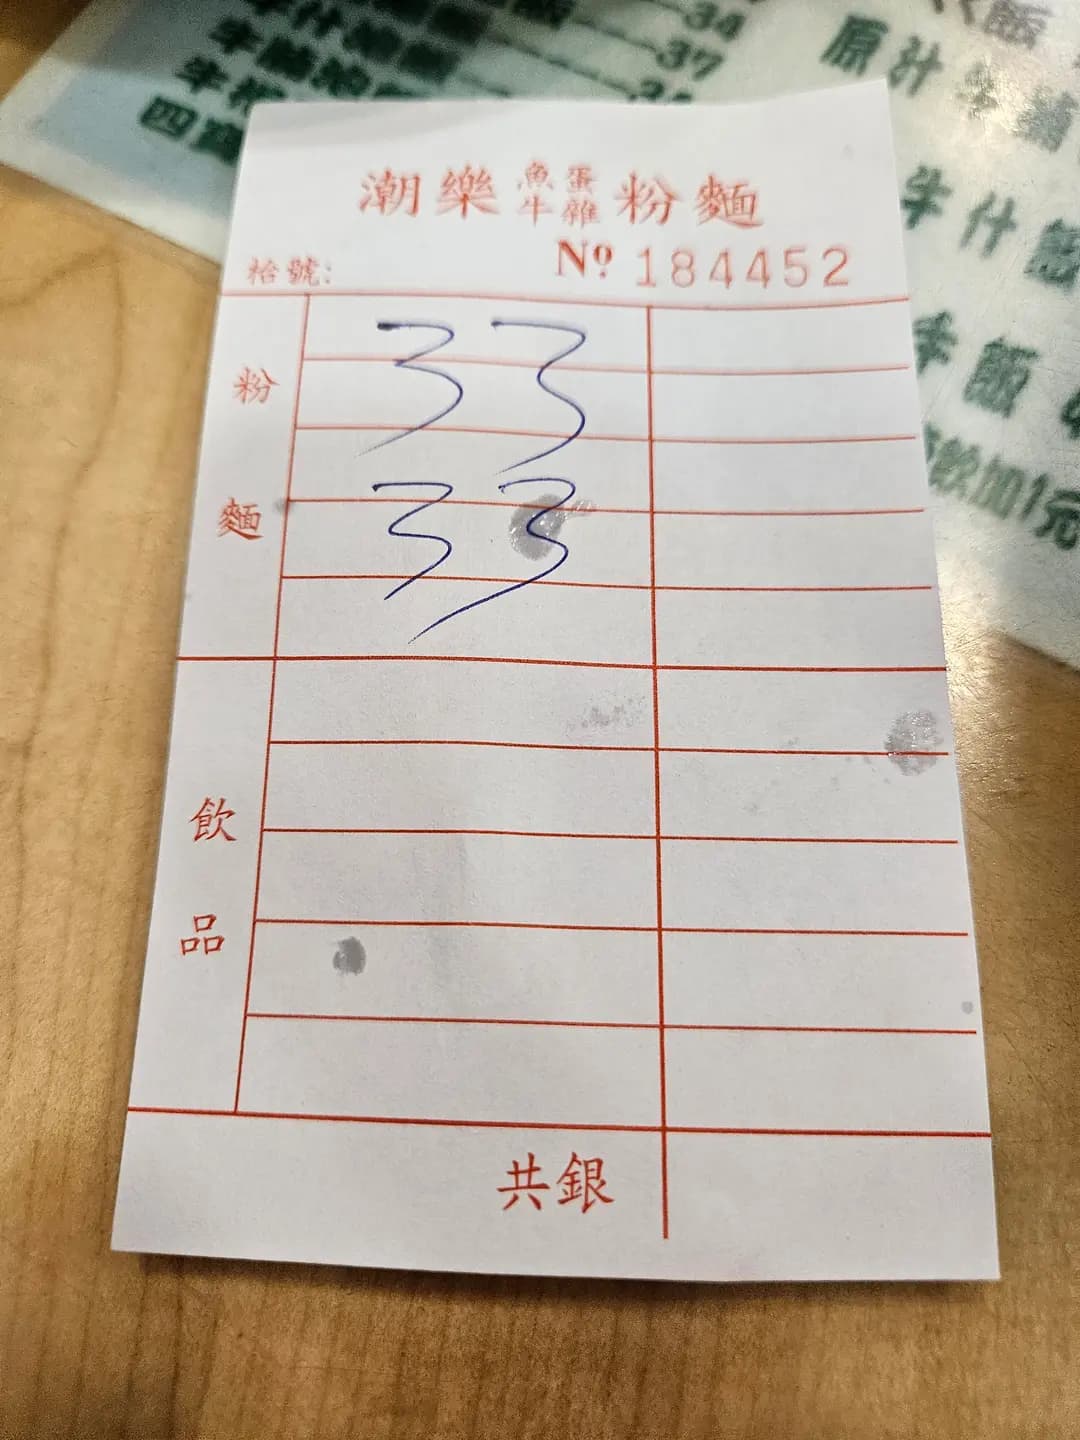 34
37
原汁
四寶
牛什
飯
飲加1元
潮樂魚蛋牛雜粉麵
枱號:
Nº 184452
粉麵
33
33
飲品
共銀